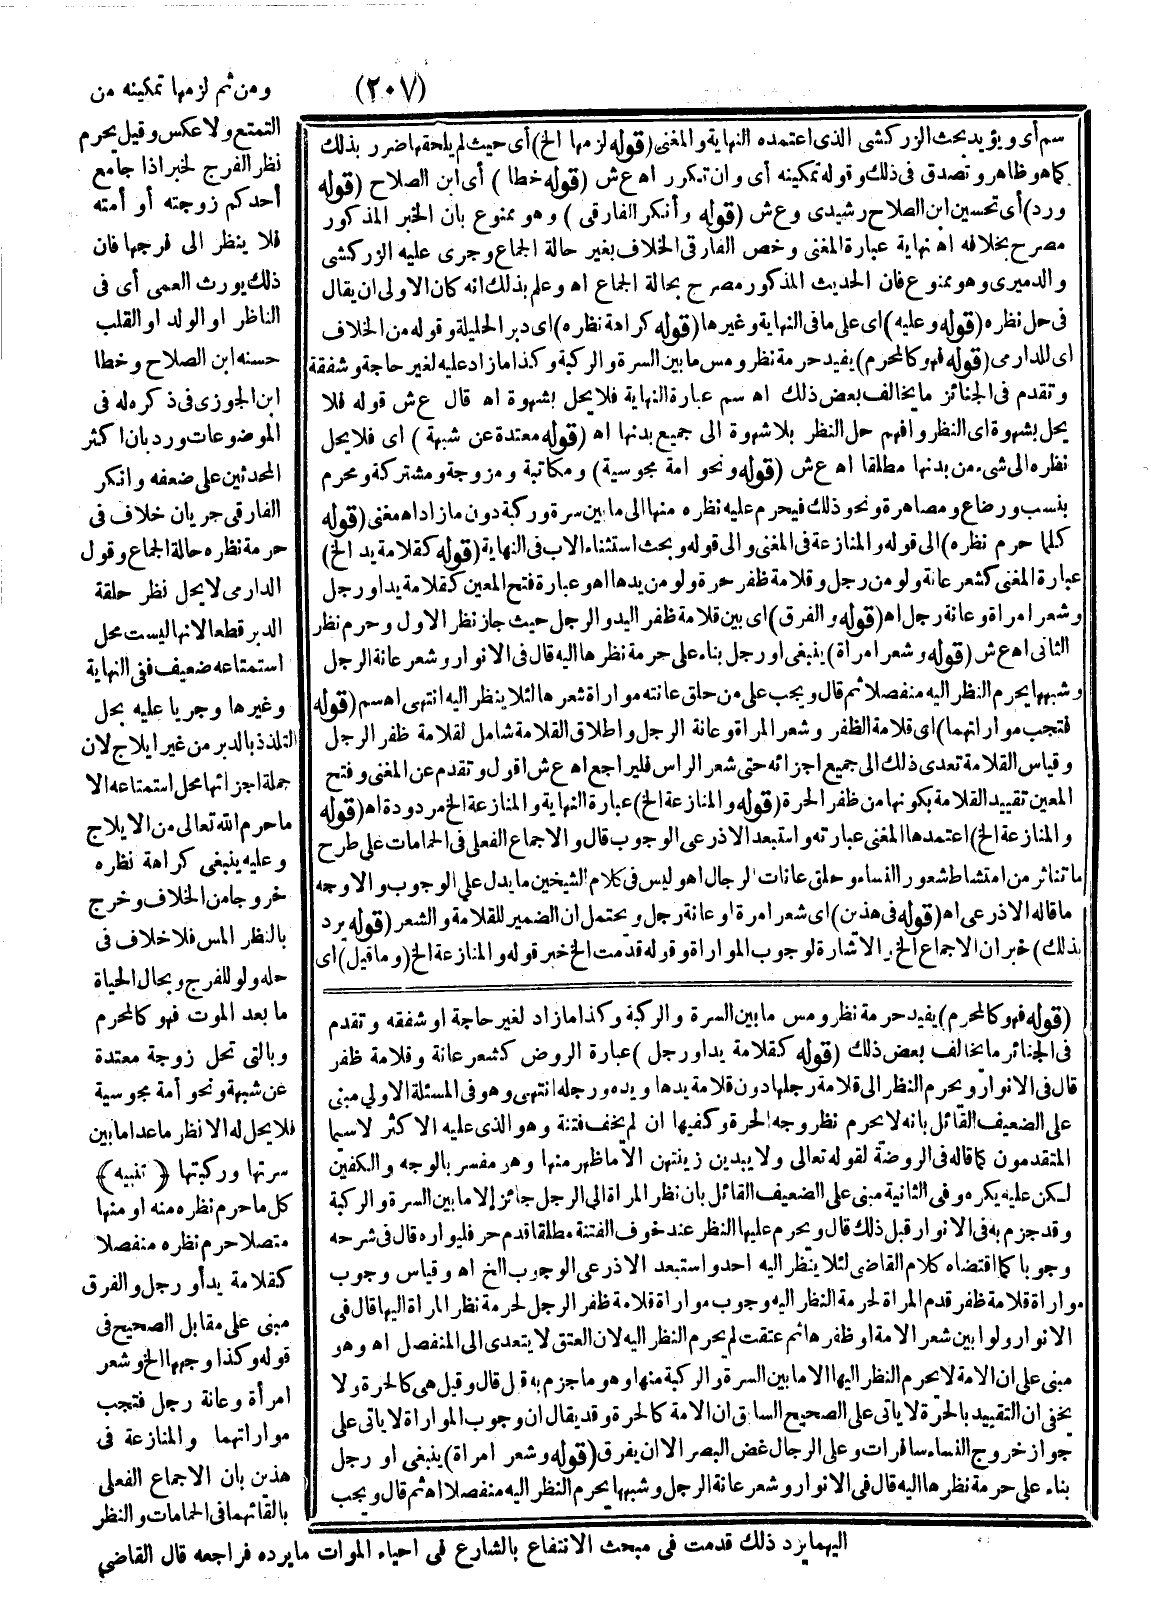 (٢٠٧)
ومن ثم لزمها تمكينه من
التمتع ولا عكس وقيل يحرم
نظر الفرج لخبر اذا جامع
أحدكم زوجته أو أمته
فلا ينظر الى فرجها فان
ذلك يورث العمى أى فى
الناظر او الولد او القلب
حسنه ابن الصلاح وخطا
ابن الجوزى فى ذكره له فى
الموضوعات ورد بان اكثر
المحدثين على ضعفه وانكر
الفارقى جريان خلاف فى
حرمة نظره حالة الجماع وقول
الدارمى لا يحل نظر حلقة
الدبر قطعا لانها ليست محل
استمتاعه ضعيف ففى النهاية
وغيرها وجريا عليه يحل
التلذذ بالدبر من غير ايلاج لان
جملة اجزائها محل استمتاعه الا
ما حرم الله تعالى من الايلاج
وعليه ينبغى كراهة نظره
خروجا من الخلاف وخرج
بالنظر المس فلا خلاف فى
حله ولو للفرج وبحال الحياة
ما بعد الموت فهو كالمحرم
وبالتى تحل زوجة معتدة
عن شبهة ونحو أمة مجوسية
فلا يحل له الا نظر ما عدا ما بين
سرتها وركبتها ﴿ تنبيه ﴾
كل ما حرم نظره منه او منها
متصلا حرم نظره منفصلا
كقلامة يد أو رجل والفرق
مبنى على مقابل الصحيح فى
قوله وكذا وجهها الخ وشعر
امرأة وعانة رجل فتجب
مواراتهما والمنازعة فى
هذين بان الاجماع الفعلى
بالقائهما فى الحمامات والنظر
اليهما يرد ذلك قدمت فى مبحث الانتفاع بالشارع فى احياء الموات ما يرده فراجعه قال القاضى
سم أى ويؤيد بحث الزركشى الذى اعتمده النهاية والمغنى (قوله لزمها الخ) أى حيث لم يلحقها ضرر بذلك
كما هو ظاهر وتصدق فى ذلك وقوله تمكينه أى وان تكرر اه ع ش (قوله خطا) أى ابن الصلاح (قوله
ورد) أى تحسين ابن الصلاح رشيدى وع ش (قوله وأنكر الفارقى) وهو ممنوع بان الخبر المذكور
مصرح بخلافه اه نهاية عبارة المغنى وخص الفارقى الخلاف بغير حالة الجماع وجرى عليه الزركشى
والدميرى وهو ممنوع فان الحديث المذكور مصرح بحالة الجماع اه وعلم بذلك انه كان الاولى ان يقال
فى حل نظره (قوله وعليه) اى على ما فى النهاية وغيرها (قوله كراهة نظره) اى دبر الحليلة وقوله من الخلاف
اى للدارمى (قوله فهو كالمحرم) يفيد حرمة نظر ومس ما بين السرة والركبة وكذا ما زاد عليه لغير حاجة وشفقة
وتقدم فى الجنائز ما يخالف بعض ذلك اه سم عبارة النهاية فلا يحل بشهوة اه قال ع ش قوله فلا
يحل بشهوة اى النظر وافهم حل النظر بلا شهوة الى جميع بدنها اه (قوله معتدة عن شبهة) اى فلا يحل
نظره الى شىء من بدنها مطلقا اه ع ش (قوله ونحو امة مجوسية) ومكاتبة ومزوجة ومشتركة ومحرم
بنسب ورضاع ومصاهرة ونحو ذلك فيحرم عليه نظره منها الى ما بين سرة وركبة دون ما زاد اه مغنى (قوله
كلما حرم نظره) الى قوله والمنازعة فى المغنى والى قوله وبحث استثناء الاب فى النهاية (قوله كقلامة يد الخ)
عبارة المغنى كشعر عانة ولو من رجل وقلامة ظفر حرة ولو من يدها اه وعبارة فتح المعين كقلامة يد او رجل
وشعر امراة وعانة رجل اه (قوله والفرق) اى بين قلامة ظفر اليد والرجل حيث جاز نظر الاول وحرم نظر
الثانى اه ع ش (قوله وشعر امراة) ينبغى او رجل بناء على حرمة نظرها اليه قال فى الانوار وشعر عانة الرجل
وشبهها يحرم النظر اليه منفصلا ثم قال ويجب على من حلق عانته مواراة شعرها لئلا ينظر اليه انتهى اه سم (قوله
فتجب مواراتهما) اى قلامة الظفر وشعر المراة وعانة الرجل واطلاق القلامة شامل لقلامة ظفر الرجل
وقياس القلامة تعدى ذلك الى جميع اجزائه حتى شعر الراس فليراجع اه ع ش اقول وتقدم عن المغنى وفتح
المعين تقييد القلامة بكونها من ظفر الحرة (قوله والمنازعة الخ) عبارة النهاية والمنازعة الخ مردودة اه (قوله
والمنازعة الخ) اعتمدها المغنى عبارته واستبعد الاذرعى الوجوب قال والاجماع الفعلى فى الحمامات على طرح
ما تناثر من امتشاط شعور النساء وحلق عانات الرجال اه وليس فى كلام الشيخين ما يدل على الوجوب والاوجه
ما قاله الاذرعى اه (قوله فى هذين) اى شعر امرة او عانة رجل ويحتمل ان الضمير للقلامة والشعر (قوله يرد
ذلك) خبر ان الاجماع الخ والاشارة لوجوب المواراة وقوله قدمت الخ خبر قوله والمنازعة الخ (وما قيل) اى
(قوله فهو كالمحرم) يفيد حرمة نظر ومس ما بين السرة والركبة وكذا ما زاد لغير حاجة او شفقه وتقدم
فى الجنائز ما يخالف بعض ذلك (قوله كقلامة يد او رجل) عبارة الروض كشعر عانة وقلامة ظفر
قال فى الانوار ويحرم النظر الى قلامة رجلها دون قلامة يدها ويده ورجله انتهى وهو فى المسئلة الاولى مبنى
على الضعيف القائل بانه لا يحرم نظر وجه الحرة وكفيها ان لم يخف فتنة وهو الذى عليه الاكثر لاسيما
المتقدمون كما قاله فى الروضة لقوله تعالى ولا يبدين زينتهن الا ما ظهر منها وهو مفسر بالوجه والكفين
لكن عليه يكره وفى الثانية مبنى على الضعيف القائل بان نظر المراة الى الرجل جائز إلا ما بين السرة والركبة
وقد جزم به فى الانوار قبل ذلك قال ويحرم عليها النظر عند خوف الفتنة مطلقا قدم حر فليواره قال فى شرحه
وجوبا كما اقتضاه كلام القاضى لئلا ينظر اليه احد واستبعد الاذرعى الوجوب الخ اه وقياس وجوب
مواراة قلامة ظفر قدم المراة لحرمة النظر اليه وجوب مواراة قلامة ظفر الرجل لحرمة نظر المراة اليها قال فى
الانوار ولو ابين شعر الامة او ظفرها ثم عتقت لم يحرم النظر اليه لان العتق لا يتعدى الى المنفصل اه وهو
مبنى على ان الامة لا يحرم النظر اليها الا ما بين السرة والركبة منها وهو ما جزم به قبل قال وقيل هى كالحرة ولا
يخفى ان التقييد بالحرة لا ياتى على الصحيح السابق ان الامة كالحرة وقد يقال ان وجوب المواراة لا ياتى على
جواز خروج النساء سافرات وعلى الرجال غض البصر الا ان يفرق (قوله وشعر امراة) ينبغى او رجل
بناء على حرمة نظرها اليه قال فى الانوار وشعر عانة الرجل وشبهها يحرم النظر اليه منفصلا اه ثم قال ويجب